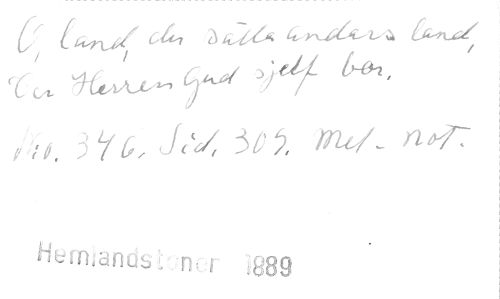 O, land, du sälla andars land,
Der Herren Gud sjelf bor.
No. 346. Sid. 309. Mel. not.
Hemlandstoner 1889